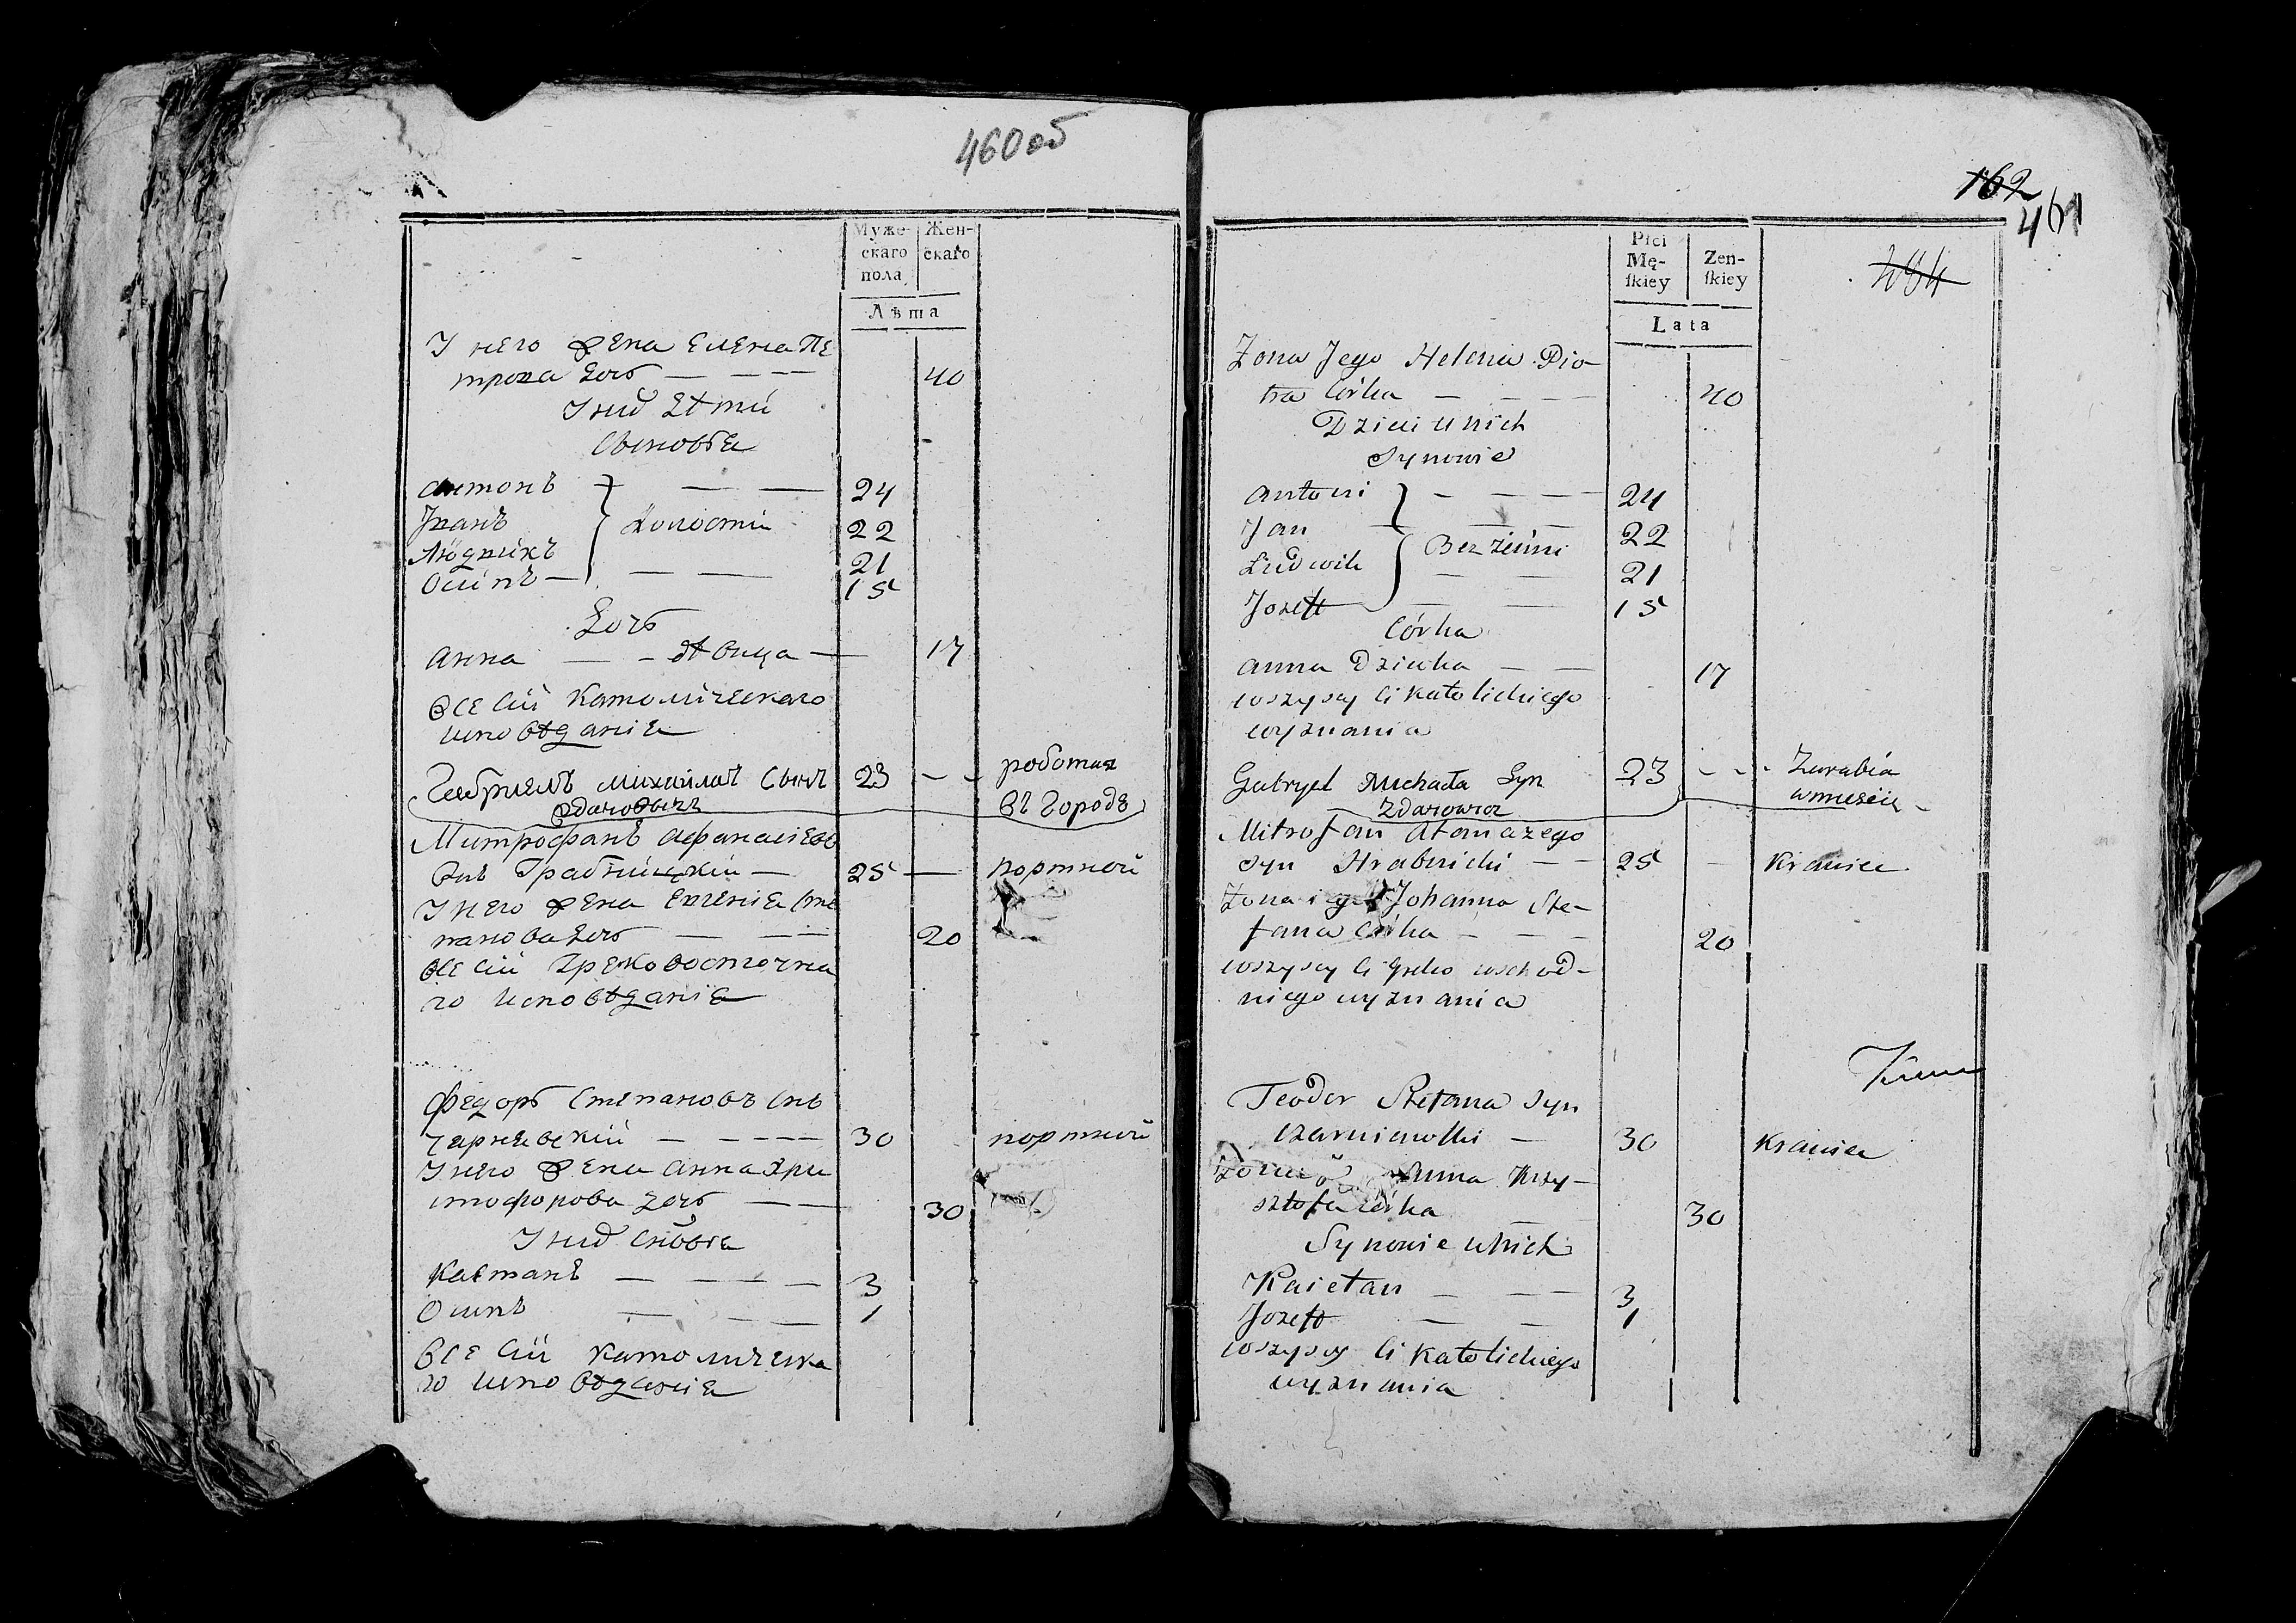 460 об
Муже-
скаго
пола
Жен-
скаго
Лѣта
У него жена Елена Пе
трова дочь — — — 40
У них дѣти
Сыновья
Антонъ — — 24
Иванъ } Холостіи 22
Людвикъ 21
Осипъ — — — 15
Дочь
Анна — — дѣвица — 17
Все сіи Католическаго
исповѣданія
Габриель Михайловъ Сынъ 23 — — работая
Здановичъ въ Городѣ
Митрофанъ Афанасіевъ
Снъ Грабницкій — 25 — портной
У него жена Евгенія Сте
панова дочь — — — 20
Все сіи Грековосточна
го исповѣданія
Федоръ Степановъ Снъ
Чарневскій — — — — 30 портной
У него жена Анна Хри
стофорова дочь — — 30
У них Сновья
Каетанъ — — — — 3
Осипъ — — — 1
Все сіи католическа
го исповѣданія
162
461
Płci
Mę-
ſkiey
Zen-
ſkiey
Lata
484
Zona Jego Helena Pio-
tra Córka — — — 40
Dzieci u nich
Synowie
Antoni } — — — 24
Jan — — — 22
Ludwik } Bezżenni 21
Jozeff — — 15
Córka
Anna Dziewka — — 17
wszyscy ci katolickiego
wyznania
Gabryel Michała Syn 23 - - - Zarabia
Zdanowicz w mieście
Mitrofan Atanazego
syn Hrabnicki — — 25 — Krawiec
Zona iego Johanna Ste-
fana Córka — — — 20
wszyscy ci Greko wschod-
niego wyznania
Teodor Stefana Syn
Czarniewski — 30 Krawiec
Zona Anna Krzy-
sztofa córka 30
Synowie u nich
Kaietan — — — 3
Jozeff — — 1
wszyscy ci katolickiego
wyznania